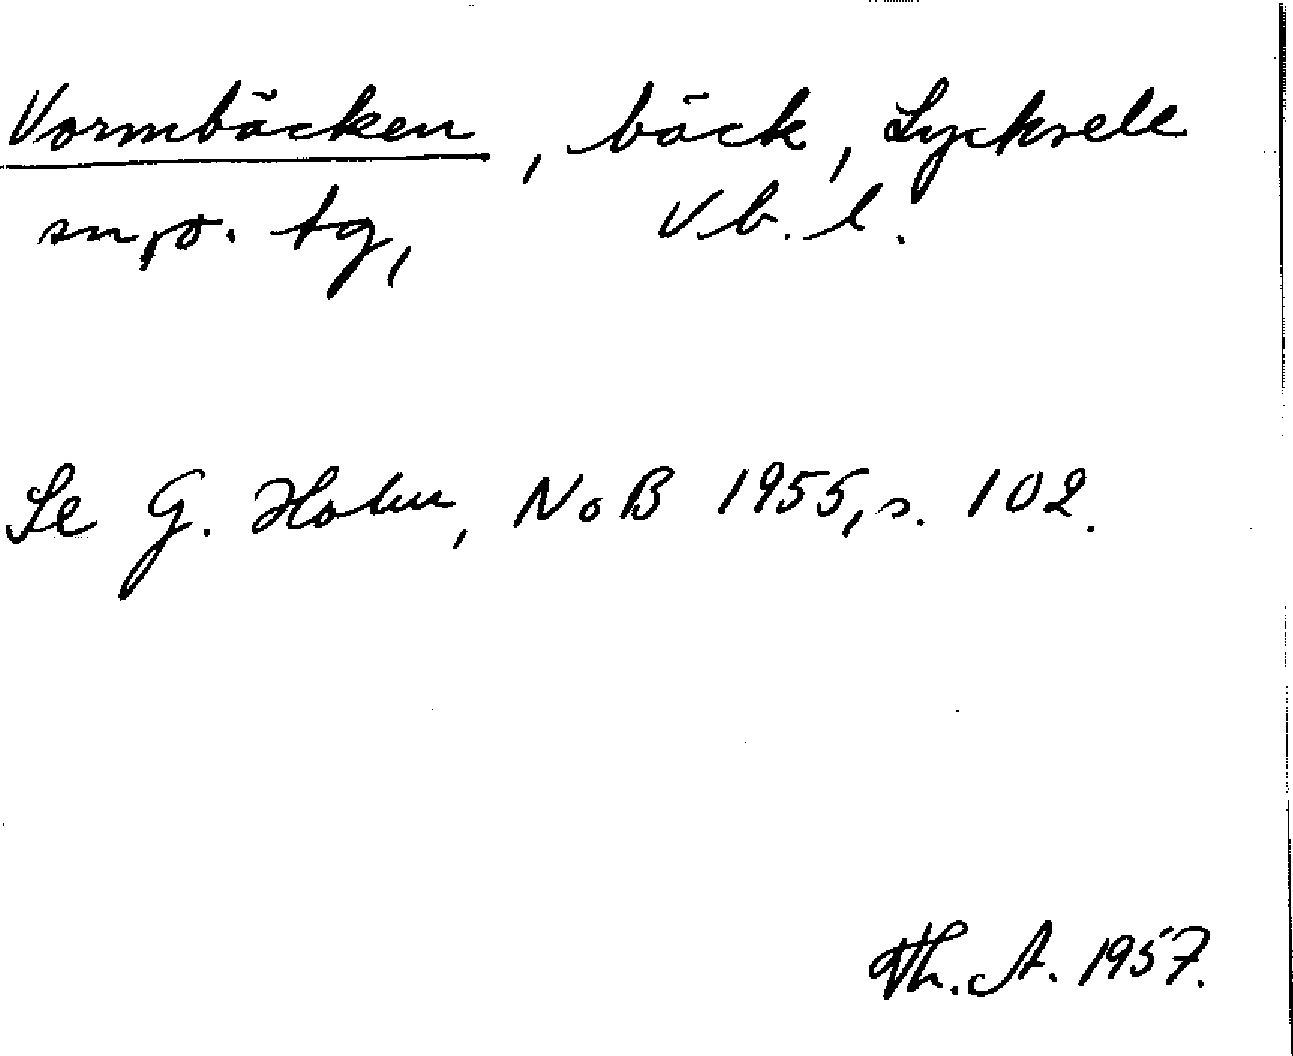 Vormbäcken, bäck, Lycksele
sn, o. tg, Vb. l.
Se G. Holm, NoB 1955, s. 102.
Th. A. 1957.